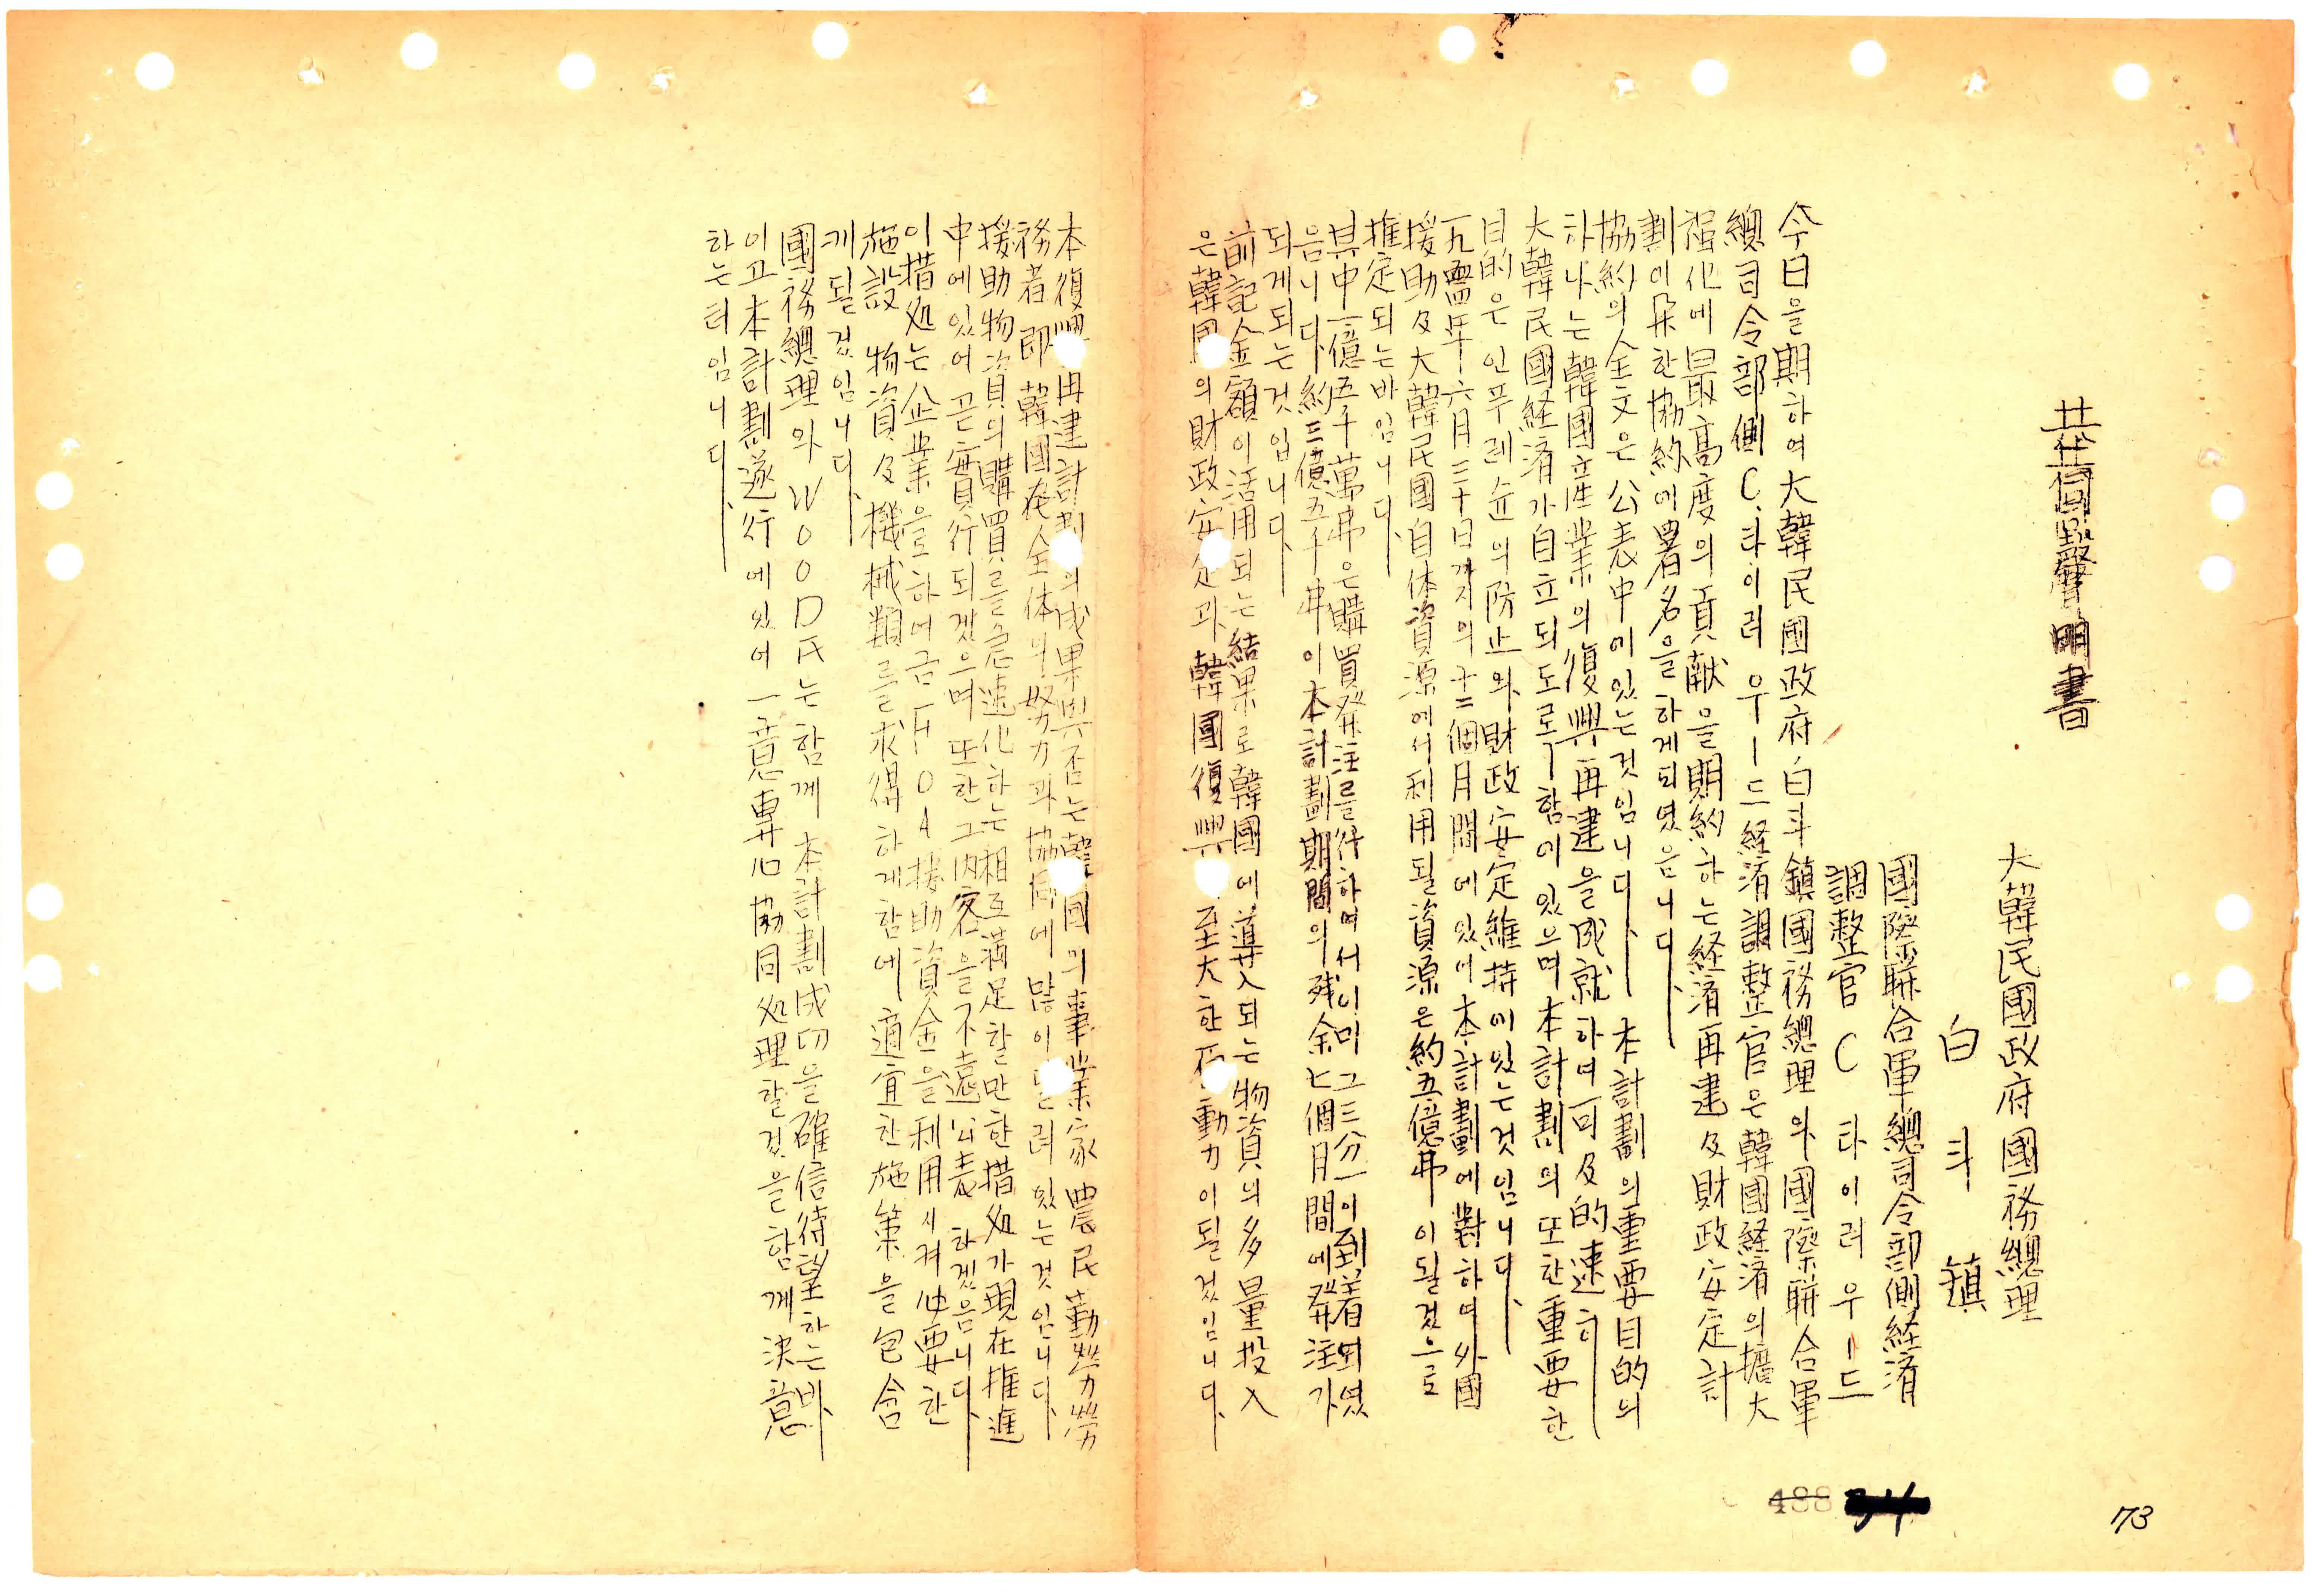 共同聲明書
大韓民國政府國務總理
白斗鎮
國際聯合軍總司令部側経済
調整官 C 타이러 우ー드
今日을期하여大韓民國政府白斗鎮國務總理와國際聯合軍
總司令部側C.타이러우ー드経済調整官은韓國経済의擴大
强化에最高度의貢献을期約하는経済再建及財政安定計
劃이朶한協約에署名을하게되였읍니다.
協約의全文은公表中에있는것임니다. 本計劃의重要目的의
하나는韓國産業의復興再建을成就하며可及的速히
大韓民國経済가自立되도로ㄱ함에있으며本計劃의또한重要한
目的은인푸레슌의防止와財政安定維持에있는것임니다.
一九五四年六月三十日까지의十二個月間에있어本計劃에對하여外國
援助及大韓民國自体資源에서利用될資源은約五億弗이될것으로
推定되는바임니다.
其中二億五千萬弗은購買発注를行하여서이미그三分一이到着되였
읍니다. 約二億五千弗이本計劃期間의残余七個月間에発注가
되게되는것입니다.
前記金額이活用되는結果로韓國에導入되는物資의多量投入
은韓國의財政安定과韓國復興 至大한 動力이될것임니다.
本復興再建計劃의成果與否는韓國의事業家農民勤勞勞
務者即韓國在全体의努力과協同에많이달려있는것임니다.
援助物資의購買를急速化하는相互満足할만한措处가現在推進
中에있어곧實行되겠으며또한그内容을不遠公表하겠음니다.
이措处는企業을하여금FOA援助資金을利用시켜必要한
施設 物資及機械類를求得하게함에適宜한施策을包含
케될것임니다.
國務總理와WOOD氏는함께本計劃成功을確信待望하는바
이고本計劃遂行에있어一意專心協同处理할것을함께決意
하는터임니다.
488
173